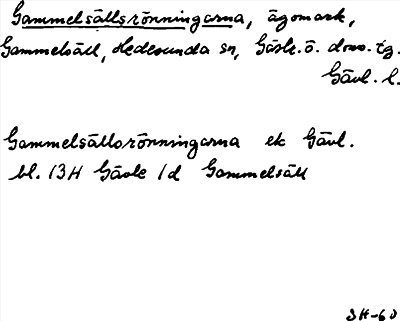 Gammelsällsrönningarna, ägomark,
Gammelsäll, Hedesunda sn, Gästr. ö. doms. tg.
Gävl. l.
Gammelsällsrönningarna ek Gävl.
bl. 13H Gävle 1d Gammelsäll